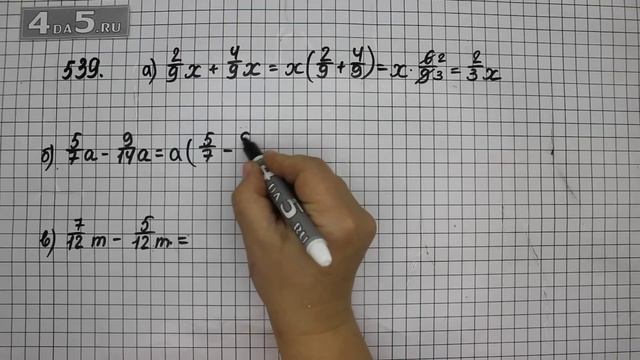 4DA5.RU
539. а) 2/9 x + 4/9 x = x(2/9 + 4/9) = x · 6 2/9 3 = 2/3 x
б) 5/7 a - 9/14 a = a(5/7 -
в) 7/12 m - 5/12 m =
4DA5.RU